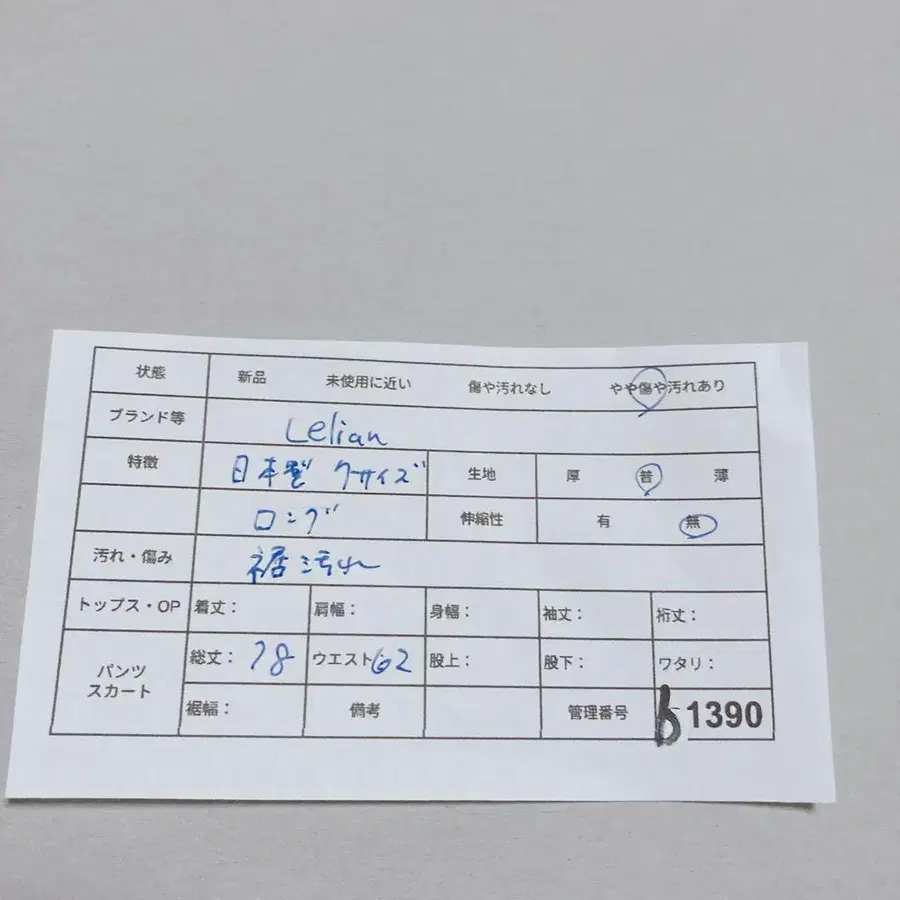 状態 新品 未使用に近い 傷や汚れなし やや傷や汚れあり
ブランド等 Lelian
特徴 日本製 クーサイズ 生地 厚 普 薄
ロング 伸縮性 有 無
汚れ・傷み 裾汚れ
トップス・OP 着丈: 肩幅: 身幅: 袖丈: 裄丈:
パンツ スカート 総丈: 78 ウエスト 62 股上: 股下: ワタリ:
裾幅: 備考 管理番号 b 1390